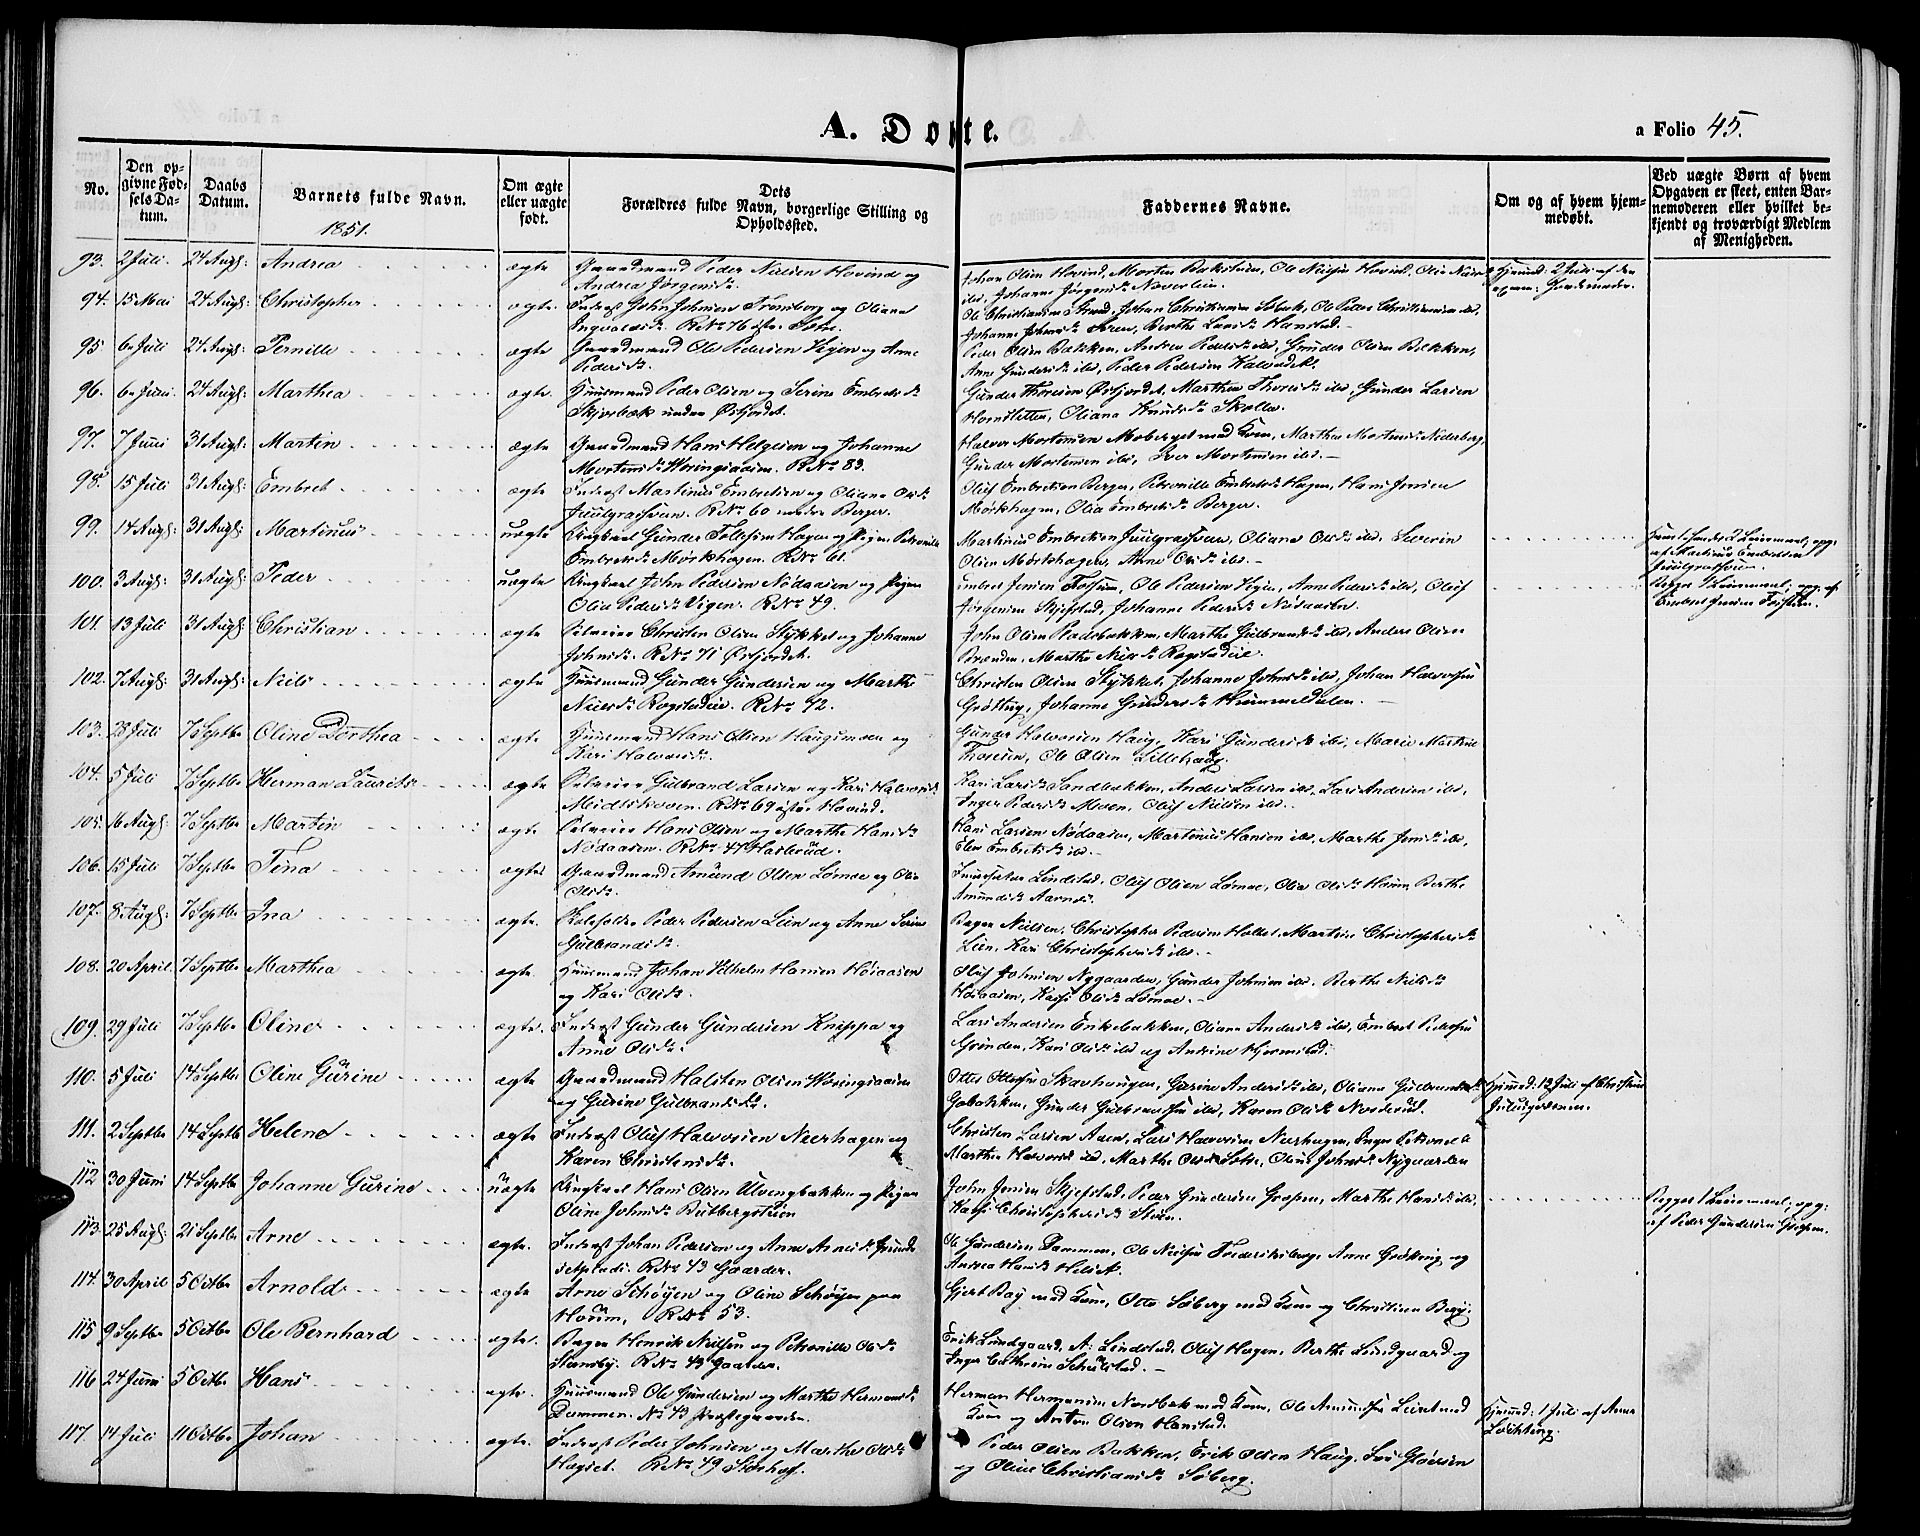 A. Døbte.
a Folio 45.
No.
Den opgivne Fødsels Datum.
Daabs Datum.
Barnets fulde Navn.
1851.
Om ægte eller uægte født.
Dets Forældres fulde Navn, borgerlige Stilling og Opholdssted.
Faddernes Navne.
Om og af hvem hjemmedøbt.
Ved uægte Børn af hvem Opgaven er skeet, enten Barnemoderen eller hvilket bekjendt og troværdigt Medlem af Menigheden.
93. 2 Juli. 24 Augs: Andrea ægte Gaardmand Peder Nielsen Hovind og
Andrea Jørgensd.
Johan Olsen Hovind, Morten Bakstuen, Ole Nielsen Hovind,
ibd, Johanne Jørgensd.
Hjemd: 2 Juli af
94. 15 Mai 24 Augs: Christopher ægte. Inderst John Johnsen Tronsborg og Oliana
Ingvaldsd. RNo 76 østre Sætre.
Ole Christiansen Strand, Johan Christiansen
Johanne Johnsd. Berthe Larsd. Hanstad.
95 6 Juli 24 Augs: Pernille ægte Gaardmand Ole Pedersen Vigen og Anne
Pedersd.
Peder Olsen Bakken, Andrea Pedersd. ibd, Gunder Olsen Bakken,
Anne Gundersd. ibd, Peder Pedersen
96. 6 Juni 24 Augs: Marthea ægte Huusmand Peder Olsen og Serine Embretsd.
Skjærbæk under Øsfjordet.
Gunder Thoresen Øsfjordet, Marthea Thoresd. ibd, Gunder Larsen
Oliana Knudsd.
97. 7 Juni 31 Augs: Martin ægte Gaardmand Hans Helgesen og Johanne
Mortensd. Woringsaasen. RNo 83.
Halvor Mortensen Moberget med Kone, Marthea Mortensd. Nederberg,
Gunder Mortensen ibd, Iver Mortensen ibd.
98. 15 Juli 31 Augs: Embret ægte Inderst Martinus Embretsen og Oliana Olsd.
Juulgraesveen. RNo 60 nedre Berger.
Oluf Embretsen Berger, Petronille Embretsd. Hagen, Hans Jensen
Mørkhagen, Olia Embretsd. Berger.
99. 14 Augs: 31 Augs: Martinus uægte Ungkarl Gunder Tollefsen Hagen og Pigen Petronille
Embretsd. Mørkhagen. RNo 61.
Martinus Embretsen Juulgraesveen, Oliana Olsd. ibd, Severin
Olsen Mørkhagen, Anne Olsd. ibd.
2 Leiermaal, opg:
af Martinus Embretsen
Juulgraesveen.
100. 3 Augs: 31 Augs: Peder uægte Ungkarl John Pedersen Nødaasen og Pigen
Olia Pedersd. Vigen. RNo 49.
Embret Jensen Fossum, Ole Pedersen Vigen, Anne Pedersd. ibd, Oluf
Jørgensen Skjefstad, Johanne Pedersd. Nødaasen.
Begges 1 Leiermaal, opg: af
Embret Jensen Fossum.
101. 13 Juli 31 Augs: Christian ægte Selveier Christen Olsen Stykket og Johanne
Johnsd. RNo 71 Øsfjordet.
John Olsen Marthe Gulbrandsd. ibd, Anders Olsen
Brænden, Marthe Nielsd. Rogstadeie.
102. 7 Augs: 31 Augs: Niels ægte Huusmand Gunder Gundersen og Marthe
Nielsd. Rogstadeie. RNo 72.
Christen Olsen Stykket, Johanne Johnsd. ibd, Johan Halvorsen
Grøttug, Johanne Gundersd. Himmeldalen.
103. 28 Juli 7 Septbr Oline Dorthea ægte Huusmand Hans Olsen Haugsmoen og
Kari Halvorsd.
Gunder Halvorsen Haug, Kari Gundersd. ibd, Marie
Thoresen, Ole Olsen Lillehaug.
104. 5 Juli 7 Septbr Herman Laurits ægte Selveier Gulbrand Larsen og Kari Halvorsd.
Midtskoven. RNo 69 østre Hovind.
Kari Larsd. Sandbakken, Anders Larsen ibd, Lars Andersen ibd,
Inger Pedersd. Moen, Oluf Nielsen ibd.
105. 16 Augs: 7 Septbr Martin ægte Selveier Hans Olsen og Marthe Hansd.
Nødaasen. RNo 47 Haslerud.
Hans Larsen Nødaasen, Martinus Hansen ibd, Marthe Jensd. ibd,
Elen Embretsd. ibd.
106. 15 Juli 7 Septbr Tina ægte Gaardmand Amund Olsen Lømoe og Olia
Olsd.
Lindstad, Oluf Olsen Lømoe, Olia Olsd. Houm, Berthe
Amundsd. Aarnes.
107. 8 Augs: 7 Septbr Ina ægte. Skoleholder Peder Pedersen Lien og Anne Serine
Gulbrandsd.
Bager Nielsen, Christopher Pedersen Marthe Christophersd.
Lien, Kari Christophersd. ibd.
108. 20 April 7 Septbr Marthea ægte Huusmand Johan Vilhelm Hansen Høiaasen
og Kari Olsd.
Oluf Johnsen Nygaarden, Gunder Johnsen ibd, Berthe Nielsd.
Høiaasen, Kari Olsd. Lømoe.
109. 29 Juli 7 Septbr Oline ægte. Inderst Gunder Gundersen Knippa og
Anne Olsd.
Lars Andersen Erikebakken, Oliana Andersd. ibd, Embret Pedersen
Grinden, Kari Olsd. ibd og Andrine Hjermstad.
110. 5 Juli 14 Septbr Oline Gurine ægte Gaardmand Halsten Olsen Woringsaasen
og Gurine Gulbrandsd.
Otter Ottersen Skovhaugen, Gurine Andersd. ibd, Oliana Gulbrandsd.
Gobakken, Gunder Gulbrandsen ibd, Karen Olsd. Norderud.
Hjemd: 12 Juli af Christian
Julusgersønn.
111. 2 Septbr 14 Septbr Helene ægte Inderst Oluf Halvorsen Neerhagen og
Karen Christensd.
Christen Larsen Aaen, Lars Halvorsen Neerhagen, Inger
Marthea Halvorsd. ibd, Marthe Olsd. Sætre, Oline Johnsd. Nygaarden
112 30 Juni 14 Septbr Johanne Gurine uægte Ungkarl Hans Olsen Ulvengbakken og Pigen
Oline Johnsd. Rutbergstuen
John Jensen Skjefstad, Peder Gundersen Græsen, Marthe Hansd. ibd,
Kari Christophersd. Stuen.
Begges 1 Leiermaal; opg:
af Peder Gundersen Græsen.
113. 25 Augs: 21 Septbr Arne ægte. Inderst Johan Pedersen og Anne Arnesd. Grundsetplads. RNo 43 Gaarder.
Ole Gundersen Dammen, Ole Nielsen Frederiksberg, Anne Grøtting og
Andrea Hansd.
114. 30 April 5 Octbr Arnold ægte Arne Schøyen og Oline Schøyen paa
Houm, RNo 53.
Gjert Bay med Kone, Otto Søberg med Kone og Christiane Berg.
115 9 Septbr 5 Octbr Ole Bernhard ægte. Bager Henrik Nielsen og Petronille Olsd.
RNo 43 Gaarder.
Erik Lundgaard, A: Lindstad, Oluf Hagen, Berthe Lundgaard og
Inger Cathrine Schulstad.
116 24 Juni 5 Octbr Hans ægte. Huusmand Ole Gundersen og Marthe Hermansd.
Dammen. No 43 Præstegaarden.
Herman Hermansen Nordbæk med Kone, Ole Amundsen med
Kone og Anton Olsen Hanstad.
Hjemd: 1 Juli af Anne
Løchting.
117. 14 Juli 11 Octbr Johan ægte. Inderst Peder Johnsen og Marthe Olsd.
Hagset. RNo 49 Storhof.
Peder Olsen Bakken, Erik Olsen Haug,
og Oline Christiansd. Søberg.